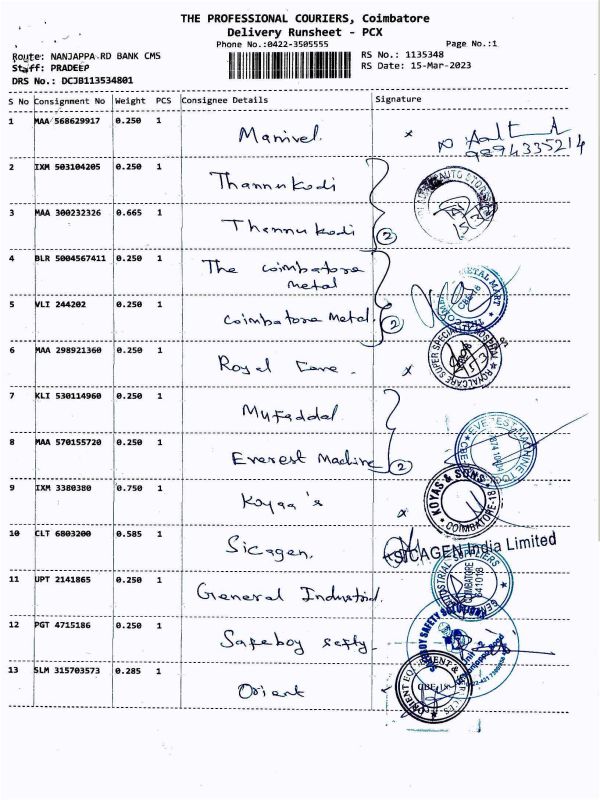 THE PROFESSIONAL COURIERS, Coimbatore
Delivery Runsheet - PCX
Phone No.:0422-3505555
Page No.:1
Route: NANJAPPA RD BANK CMS
RS No.: 1135348
Staff: PRADEEP
RS Date: 15-Mar-2023
DRS No.: DCJB113534801
S No Consignment No Weight PCS Consignee Details Signature
1 MAA 568629917 0.250 1 Manivel x
9894335214
2 IXM 503104205 0.250 1 Thannukodi
3 MAA 300232326 0.665 1 Thannukodi 2
4 BLR 5004567411 0.250 1 The coimbatore
metal
METAL MART
5 VLI 244202 0.250 1 Coimbatore Metal. 2
6 MAA 298921360 0.250 1 Royal Care. x
ROYALCARE SUPER SPECIALITY HOSPITAL
7 KLI 530114960 0.250 1 Mufaddal
8 MAA 570155720 0.250 1 Everest Machine 2
EVEREST MACHINE
9 IXM 3380380 0.750 1 Koyaa's x
KOYAS & SONS
COIMBATORE-18
10 CLT 6803200 0.585 1 Sicagen.
SICAGEN India Limited
11 UPT 2141865 0.250 1 General Industrial.
INDUSTRIAL SUPPLIERS
COIMBATORE
641018
12 PGT 4715186 0.250 1 Safeboy sefty.
SAFETY
13 SLM 315703573 0.285 1 Orient
ORIENT
CBE-18